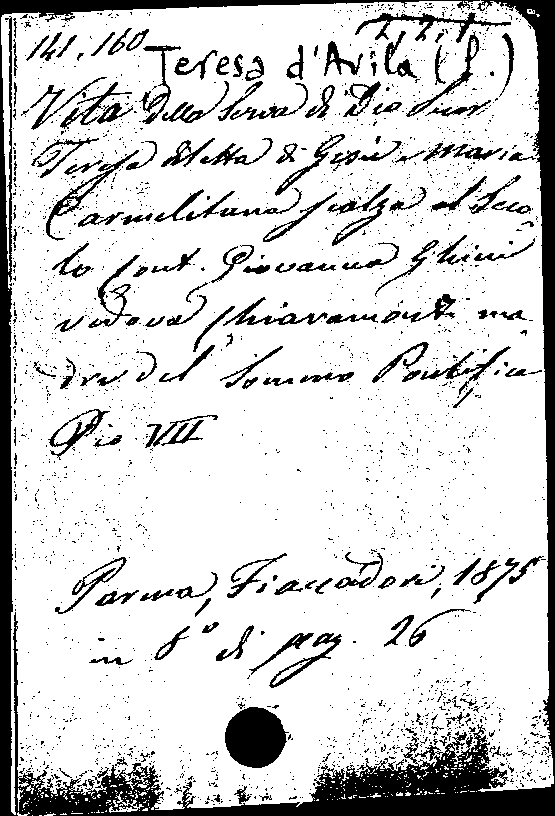 2, 2, 1
141. 160
Teresa d'Avila (S.)
Vita della Serva di Dio Suor
Teresa diletta di Gesù e Maria
Carmelitana scalza al Seco-
lo Cont. Giovanna Ghini
vedova Chiaramonti ma-
dre del Sommo Pontifice
Pio VII
Parma, Fiaccadori, 1875
in 8° di pag. 26